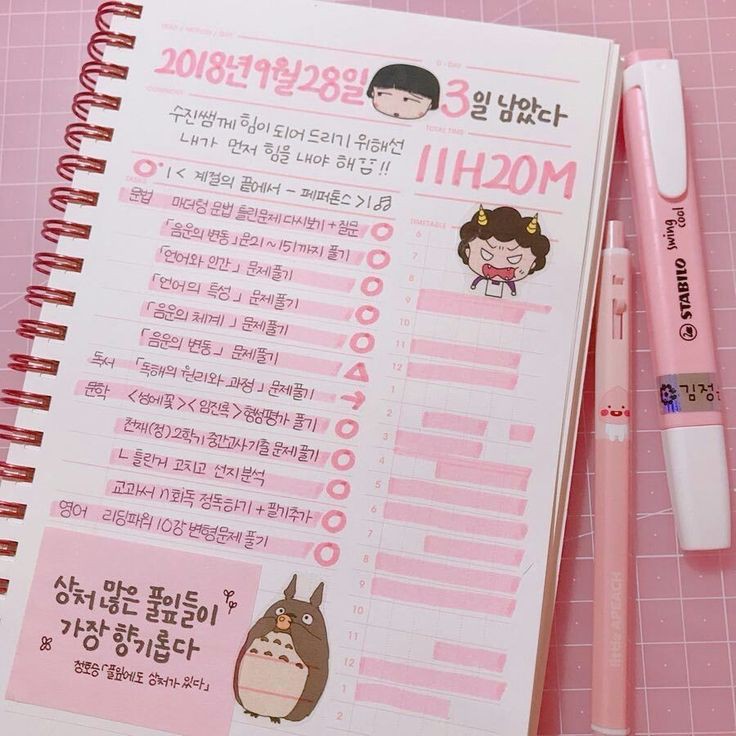 YEAR / MONTH / DAY
2018년 9월 28일
D-DAY
3일 남았다
COMMENT
수진쌤께 힘이 되어 드리기 위해선
내가 먼저 힘을 내야 해 !!
TOTAL TIME
11H20M
TASKS
1 < 계절의 끝에서 - 페퍼톤스 > 1
문법 마더텅 문법 틀린문제 다시보기 + 질문
「음운의 변동」 문21 ~ 151까지 풀기
「언어와 인간」 문제풀기
「언어의 특성」 문제풀기
「음운의 체계」 문제풀기
「음운의 변동」 문제풀기
독서 「독해의 원리와 과정」 문제풀기
문학 <성에꽃> <임진록> 형성평가 풀기
천재(정) 2학기 중간고사 기출 문제 풀기
ㄴ 틀린거 고치고 선지분석
교과서 n회독 정독하기 + 필기추가
영어 리딩파워 10강 변형문제 풀기
TIMETABLE
6
7
8
9
10
11
12
1
2
3
4
5
6
7
8
9
10
11
12
1
2
상처 많은 풀잎들이
가장 향기롭다
정호승 「풀잎에도 상처가 있다」
STABILO
swing cool
김정
little APEACH